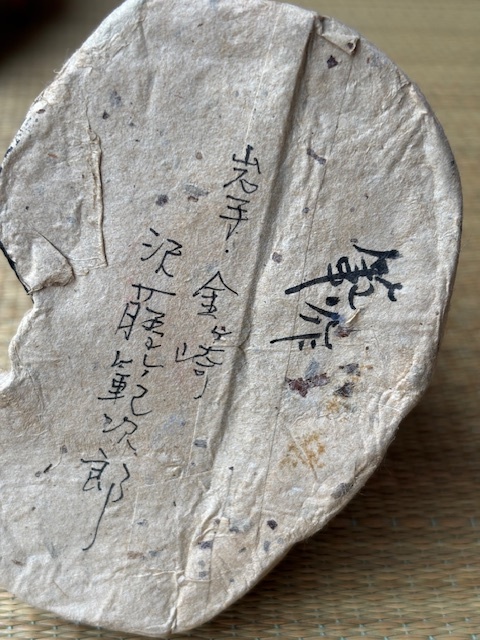 範作
岩手・金ヶ崎
沢藤範次郎